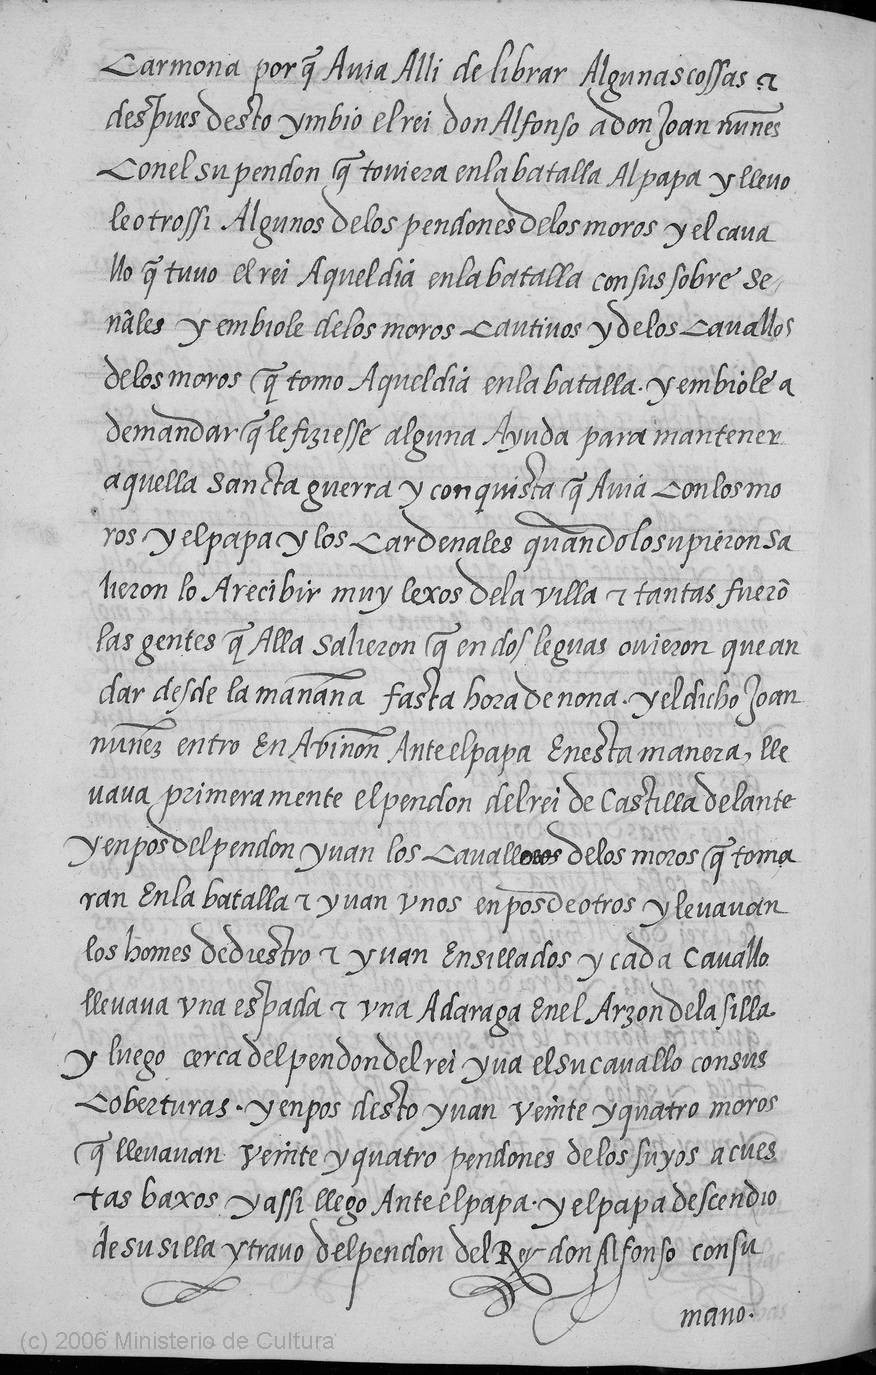 Carmona por q̃ Auia Alli de librar Algunas cossas ⁊
despues desto ymbio el rei don Alfonso a don Joan nuñes
Con el su pendon q̃ touiera en la batalla Al papa y lleuo
le otrossi Algunos de los pendones de los moros y el caua
llo q̃ tuuo el rei Aquel dia en la batalla con sus sobre Se
ñales y embiole de los moros Cautiuos y de los Cauallos
de los moros q̃ tomo Aquel dia en la batalla. y embiole a
demandar q̃ le fiziesse alguna Ayuda para mantener
aquella Sancta guerra y conquista q̃ Auia Con los mo
ros y el papa y los Cardenales quando lo supieron Sa
lieron lo A recibir muy lexos de la villa ⁊ tantas fuerõ
las gentes q̃ Alla Salieron q̃ en dos leguas ouieron que an
dar desde la mañana fasta hora de nona. y el dicho Joan
nuñez entro En Aviñon Ante el papa En esta manera, lle
uaua primeramente el pendon del rei de Castilla delante
y en pos del pendon yuan los Cauallos de los moros q̃ toma
ran En la batalla ⁊ yuan vnos en pos de otros y leuauan
los homes de diestro ⁊ yuan Ensillados y cada Cauallo
lleuaua vna espada ⁊ vna Adaraga En el Arzon de la silla
y luego cerca del pendon del rei yua el su cauallo con sus
Coberturas. y en pos desto yuan veinte y quatro moros
q̃ lleuauan veinte y quatro pendones de los suyos a cues
tas baxos y assi llego Ante el papa. y el papa descendio
de su silla y trauo del pendon del Rey don Alfonso con su
mano.
(c) 2006 Ministerio de Cultura